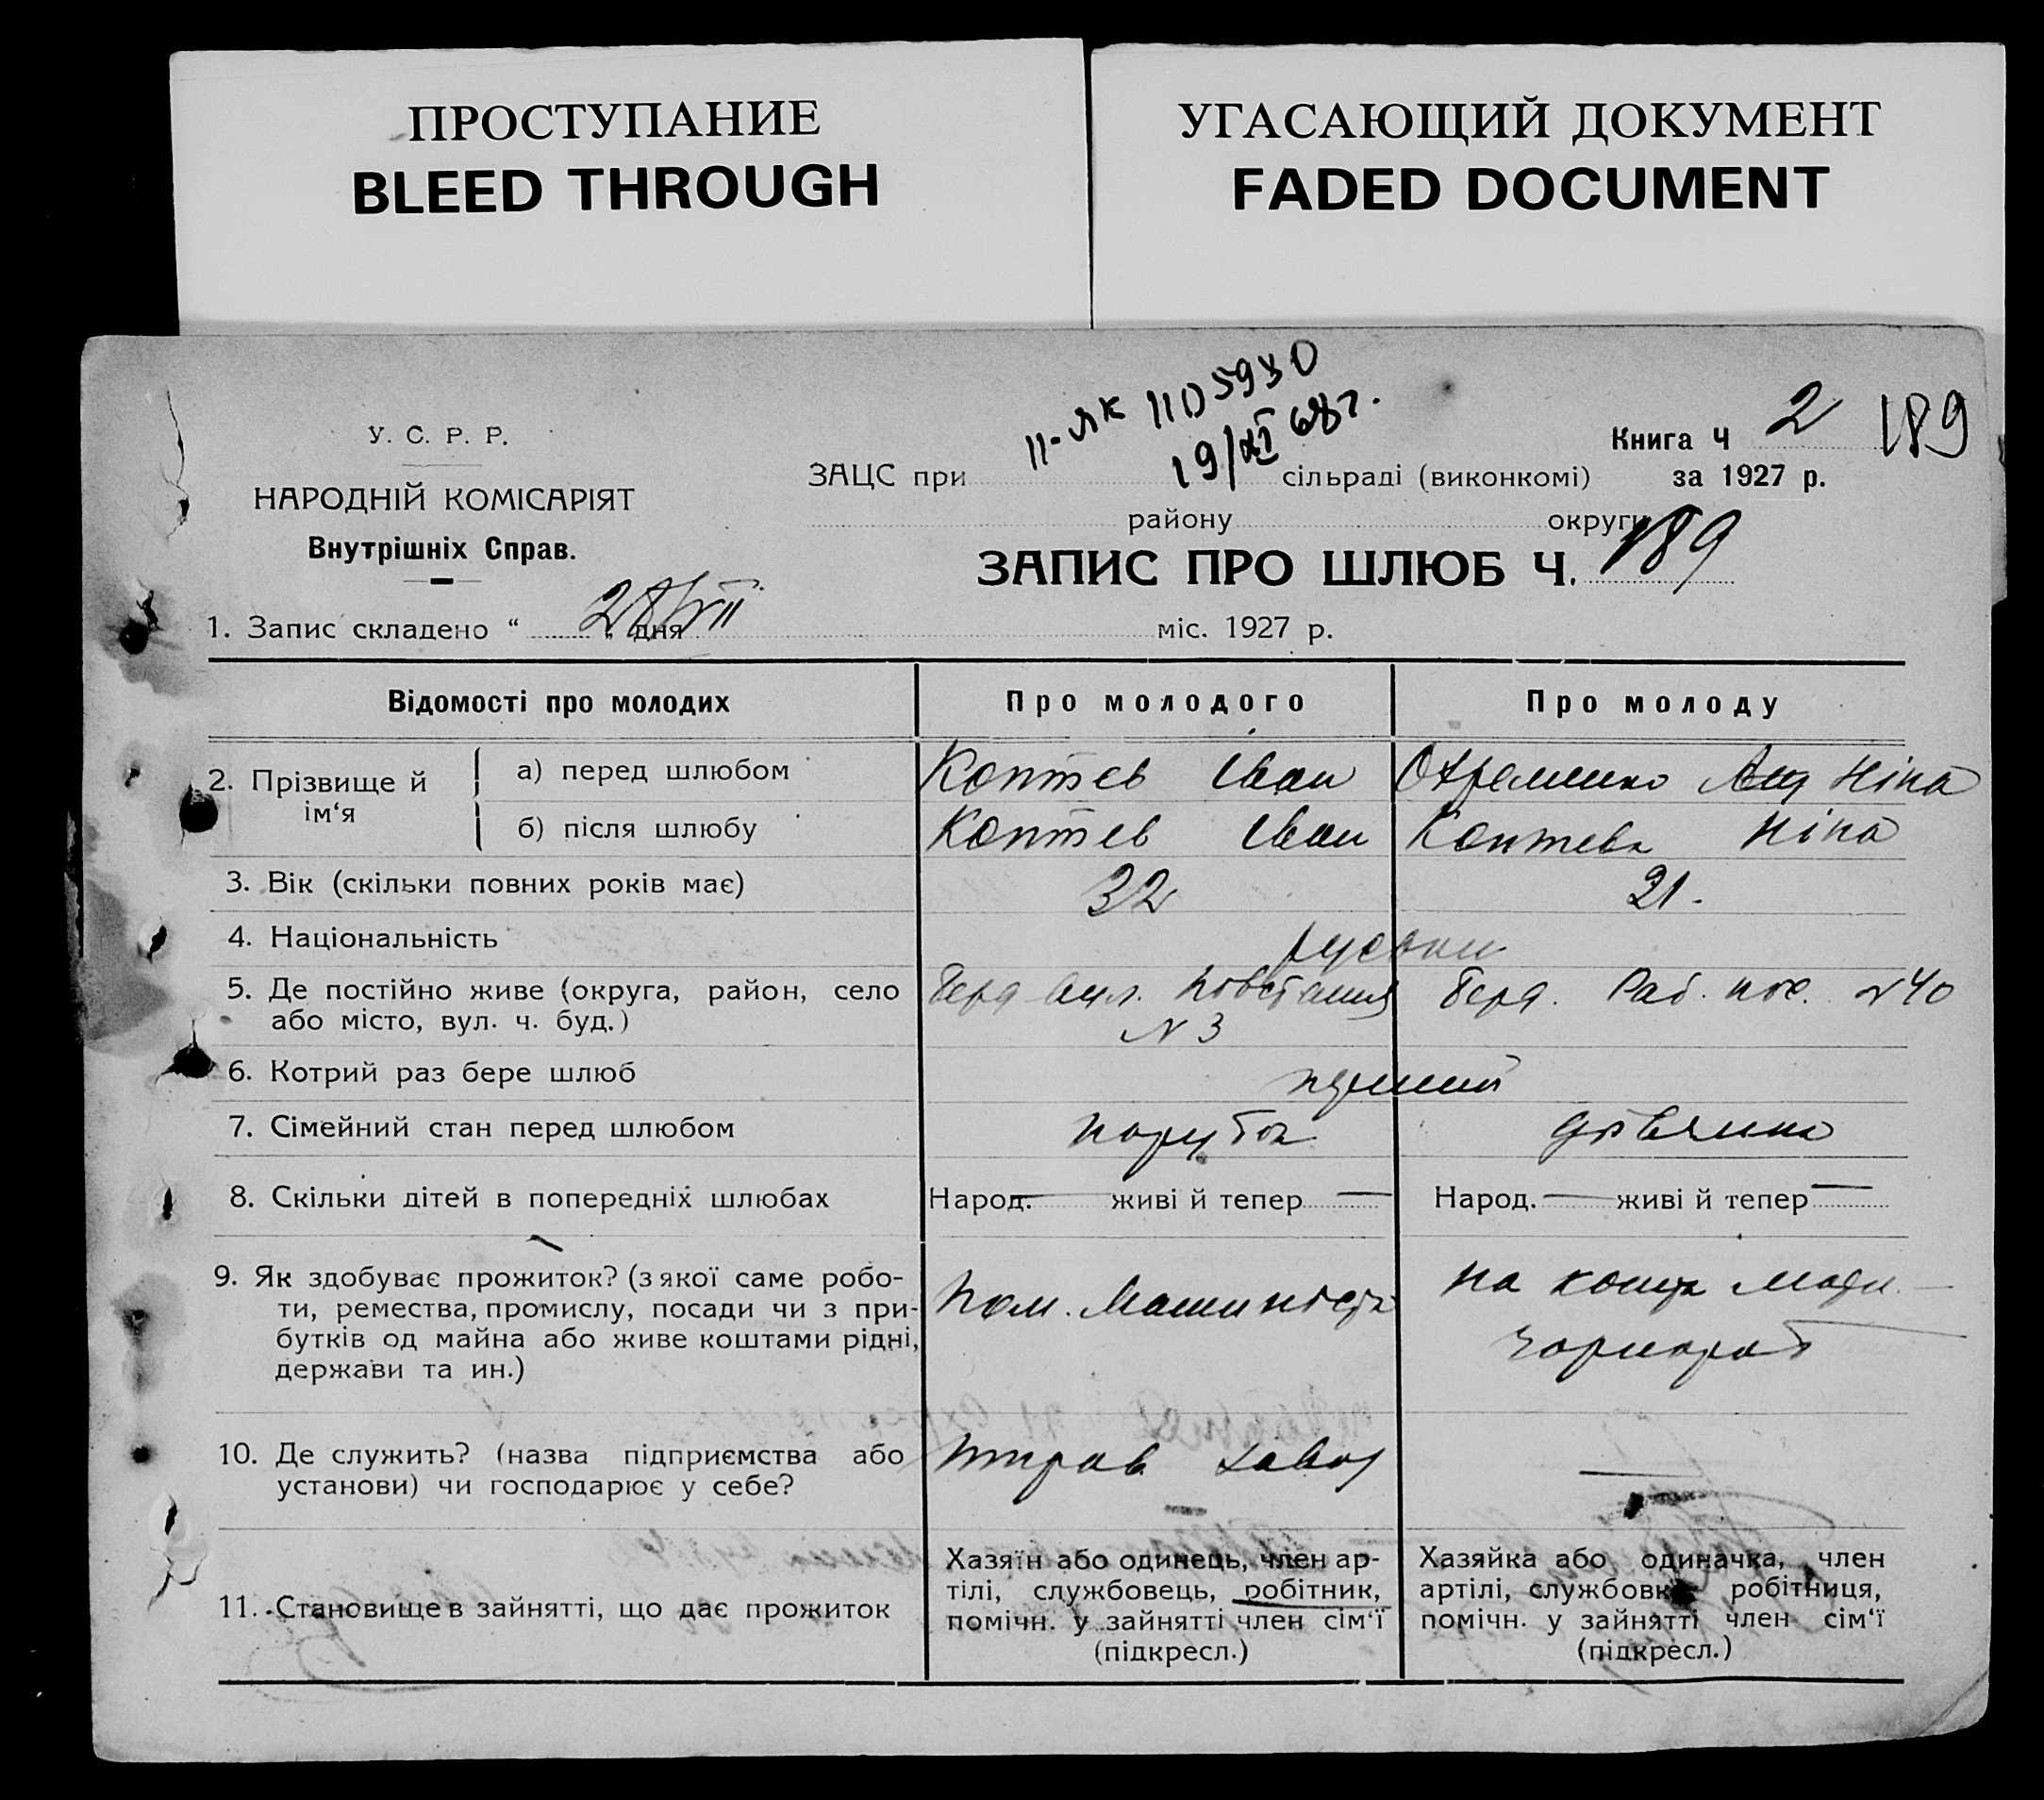 ПРОСТУПАНИЕ
BLEED THROUGH
УГАСАЮЩИЙ ДОКУМЕНТ
FADED DOCUMENT
У. С. Р. Р.
НАРОДНІЙ КОМІСАРІЯТ
Внутрішніх Справ.
II-ЯК 1105930
19/XI 68г.
Книга Ч 2 189
ЗАЦС при сільраді (виконкомі) за 1927 р.
району округи
ЗАПИС ПРО ШЛЮБ Ч. 189
1. Запис складено “ 28/VII „ дня міс. 1927 р.
Відомості про молодих Про молодого Про молоду
2. Прізвище й ім‘я
а) перед шлюбом Коптев Іван Охременко Ніна
б) після шлюбу Коптев Іван Коптева Ніна
3. Вік (скільки повних років має) 32 21.
4. Національність руськи
5. Де постійно живе (округа, район, село Берд вул. Повстання Берд. Раб. пос. N 40
або місто, вул. ч. буд.) N 3
6. Котрий раз бере шлюб перший
7. Сімейний стан перед шлюбом парубок дівчина
8. Скільки дітей в попередніх шлюбах Народ. — живі й тепер — Народ. — живі й тепер —
9. Як здобуває прожиток? (з якої саме робо-
ти, ремества, промислу, посади чи з при-
бутків од майна або живе коштами рідні,
держави та ин.)
Пом. Машиніста
на кошти
10. Де служить? (назва підприємства або
установи) чи господарює у себе?
завод —
11. Становище в зайнятті, що дає прожиток
Хазяїн або одинець, член ар-
тілі, службовець, робітник,
помічн. у зайнятті член сім‘ї
(підкресл.)
Хазяйка або одиначка, член
артілі, службовка, робітниця,
помічн. у зайнятті член сім‘ї
(підкресл.)